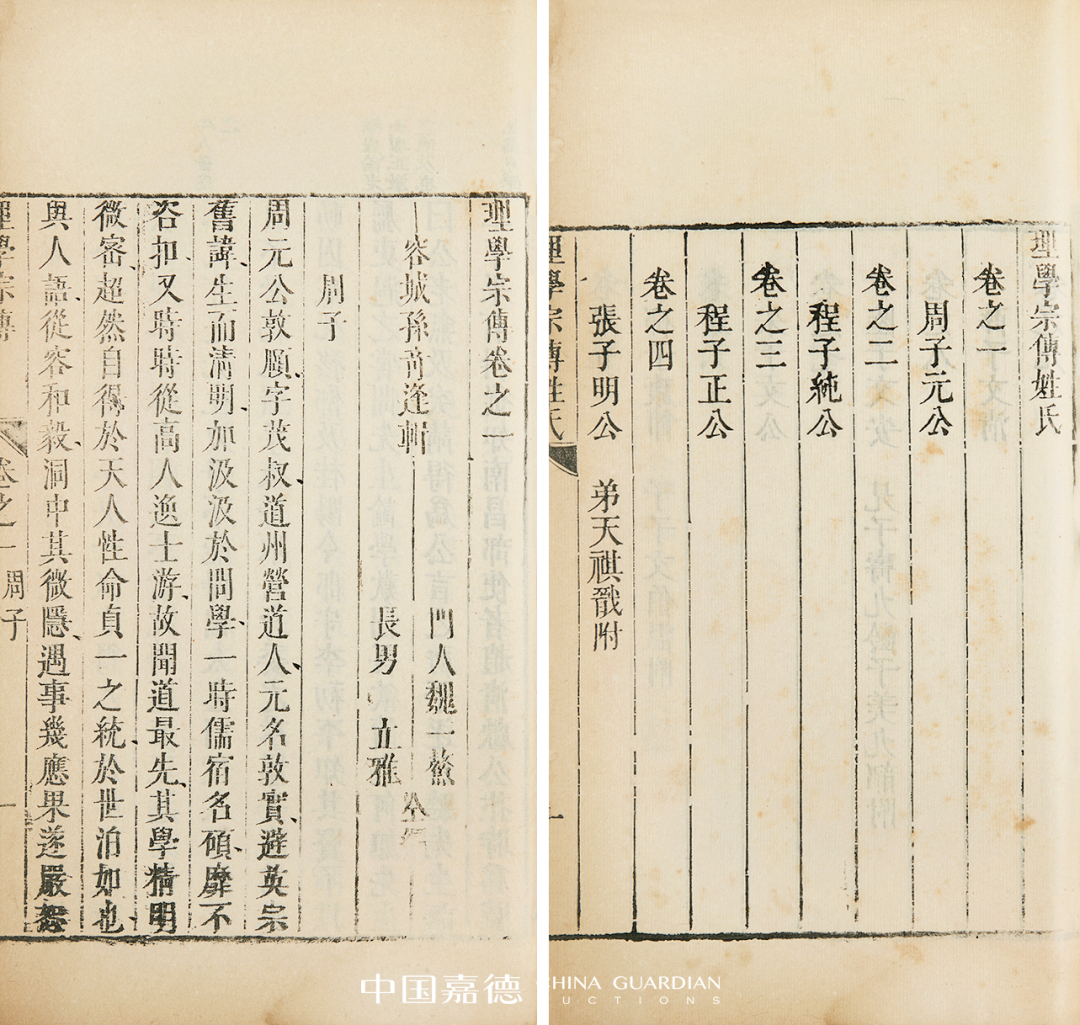 理學宗傳姓氏
卷之一
周子元公
卷之二
程子純公
卷之三
程子正公
卷之四
張子明公 弟天祺戩附
理學宗傳姓氏
一
理學宗傳卷之一
容城孫奇逢輯
門人魏一鰲
長男 立雅
周子
周元公敦頤字茂叔道州營道人元名敦實避英宗
舊諱生而清明加汲汲於問學一時儒宿名碩靡不
咨扣又時時從高人逸士游故聞道最先其學精明
微密超然自得於天人性命貞一之統於世泊如也
與人語從容和毅洞中其微隱遇事幾應果遂嚴恕
理學宗傳 卷之一 周子 一
中国嘉德
CHINA GUARDIAN
AUCTIONS